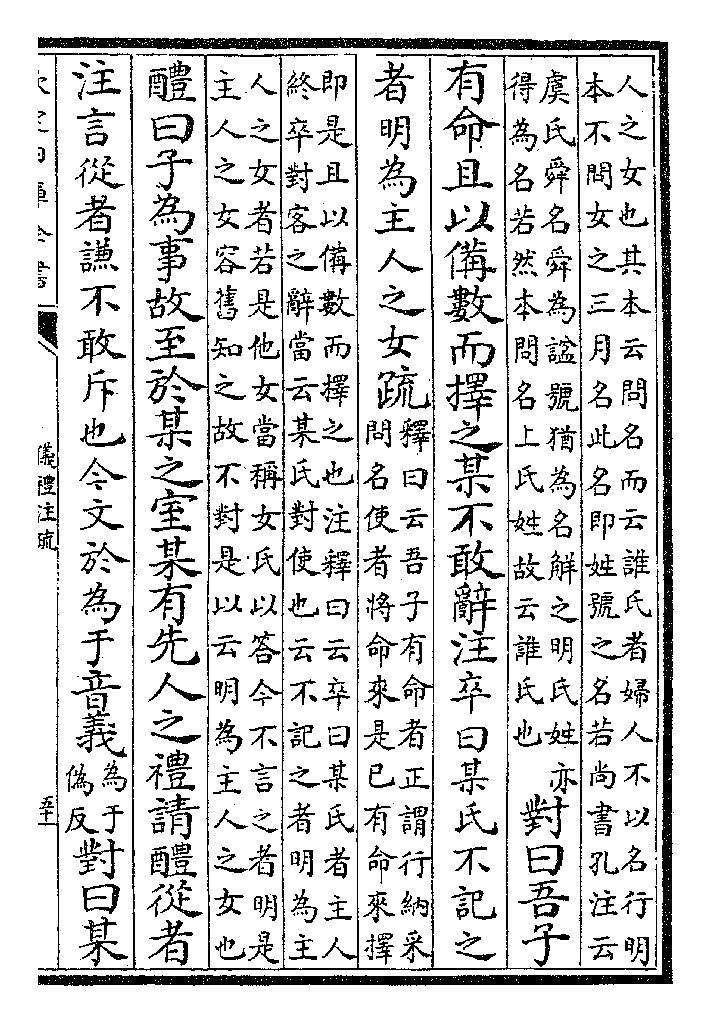 人之女也其本云問名而云誰氏者婦人不以名行明
本不問女之三月名此名即姓號之名若尚書孔注云
虞氏舜名舜為諡號猶為名解之明氏姓亦
得為名若然本問名上氏姓故云誰氏也
對曰吾子
有命且以備數而擇之某不敢辭注卒曰某氏不記之
者明為主人之女疏
釋曰云吾子有命者正謂行納采
問名使者將命來是已有命來擇
即是且以備數而擇之也注釋曰云卒曰某氏者主人
終卒對客之辭當云某氏對使也云不記之者明為主
人之女者若是他女當稱女氏以答今不言之者明是
主人之女容舊知之故不對是以云明為主人之女也
醴曰子為事故至於某之室某有先人之禮請醴從者
注言從者謙不敢斥也今文於為于音義
為于
偽反
對曰某
儀禮注疏